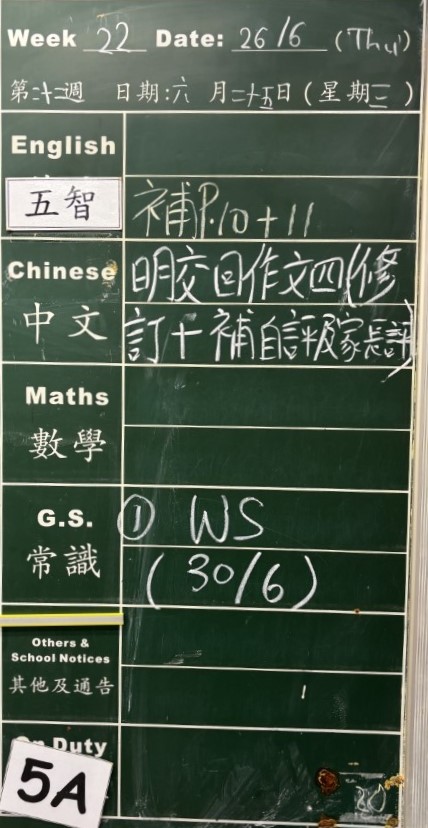 Week 22 Date: 26/6 (Thu)
第二十二週 日期:六 月二十五日(星期三)
English
五智 補P.10+11
Chinese 明交回作文四(修
中文 訂+補自評及家長評)
Maths
數學
G.S. ① WS
常識 (30/6)
Others &
School Notices
其他及通告
On Duty
5A